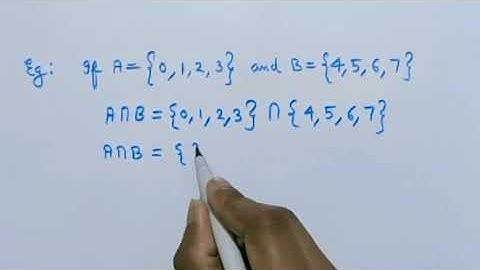 Eg: If A = {0, 1, 2, 3} and B = {4, 5, 6, 7}
A∩B = {0, 1, 2, 3} ∩ {4, 5, 6, 7}
A∩B = { }